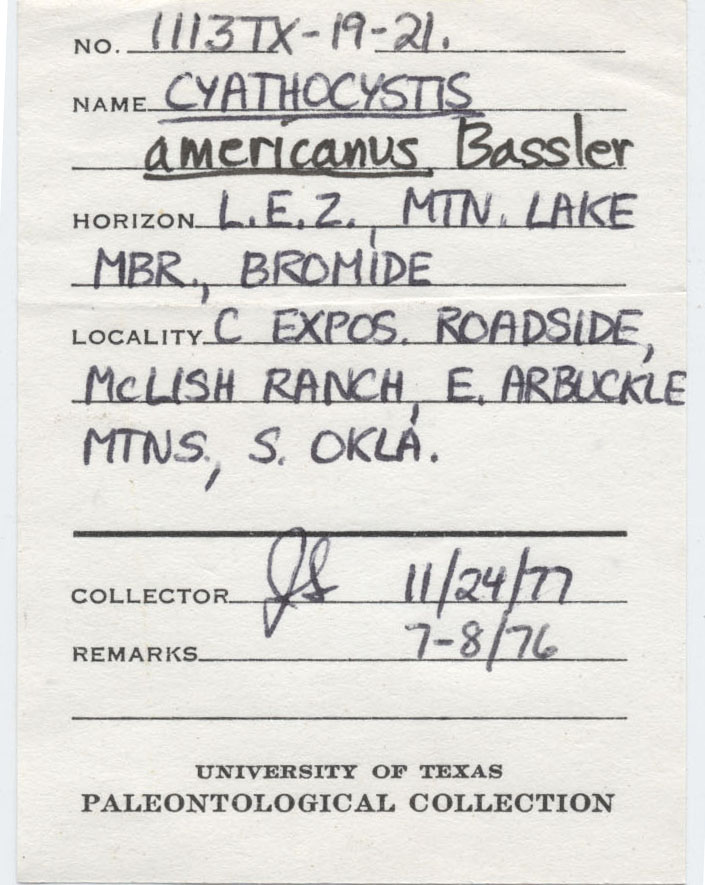 NO. 1113TX-19-21.
NAME CYATHOCYSTIS
americanus Bassler
HORIZON L.E.Z., MTN. LAKE
MBR., BROMIDE
LOCALITY C EXPOS. ROADSIDE,
McLISH RANCH, E. ARBUCKLE
MTNS., S. OKLA.
COLLECTOR JS 11/24/77
REMARKS 7-8/76
UNIVERSITY OF TEXAS
PALEONTOLOGICAL COLLECTION